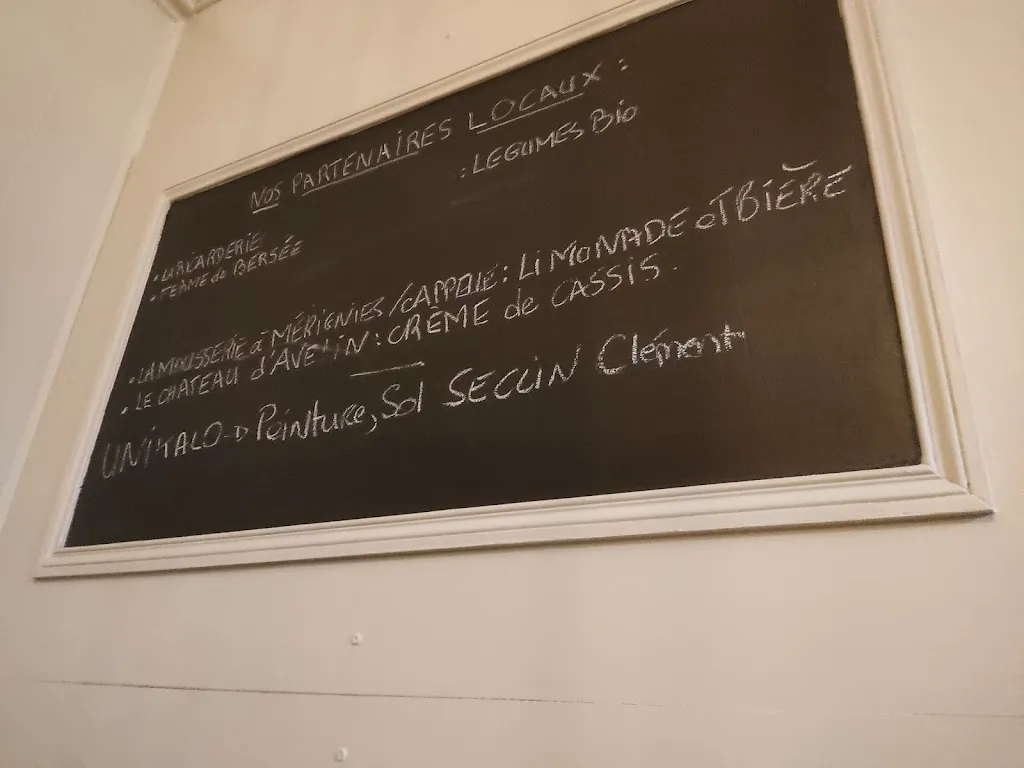 NOS PARTENAIRES LOCAUX :
: LEGUMES Bio
• FERME de BERSÉE
• LA MOUSSERIE à MÉRIGNIES / CAPPELLE : LIMONADE et BIÈRE
• LE CHATEAU d'AVELIN : CRÈME de CASSIS.
Peinture, Sol SEGUIN Clément